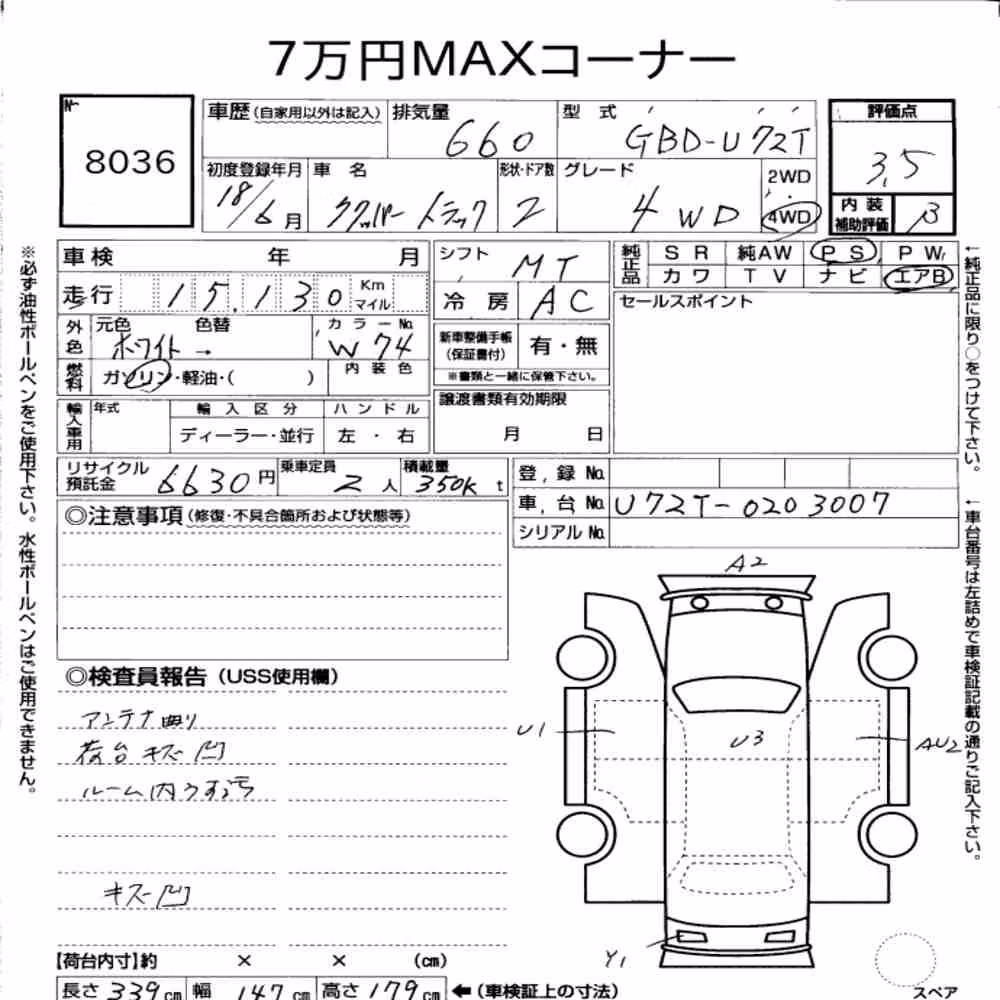 7万円MAXコーナー
No
8036
車歴 (自家用以外は記入) 排気量 660 型式 GBD-U72T
評価点 3.5
初度登録年月 18/6月 車名 クリッパートラック 形状・ドア数 2 グレード 4WD 2WD 4WD
内装補助評価 B
車検 年 月
走行 15,130 Km マイル
シフト MT
冷房 AC
純正品 SR 純AW PS PW
カワ TV ナビ エアB
セールスポイント
外色 元色 ホワイト → 色替 カラーNo. W 74
新車整備手帳(保証書付) 有・無
※書類と一緒に保管下さい。
燃料 ガソリン・軽油・( ) 内装色
譲渡書類有効期限
月 日
輸入車用 年式 輸入区分 ハンドル
ディーラー・並行 左・右
リサイクル預託金 6630円 乗車定員 2人 積載量 350K t
登録No.
車台No. U72T-0203007
シリアルNo.
◎注意事項(修復・不具合箇所および状態等)
◎検査員報告(USS使用欄)
アンテナ曲り
荷台キズ凹
ルーム内うす汚
キズ凹
A2
U1
U3
AU2
Y1
スペア
【荷台内寸】約 × × (cm)
長さ 339cm 幅 147cm 高さ 179cm ←(車検証上の寸法)
※必ず油性ボールペンをご使用下さい。水性ボールペンはご使用できません。
←純正品に限り○をつけて下さい。
←車台番号は左詰めで車検証記載の通りご記入下さい。